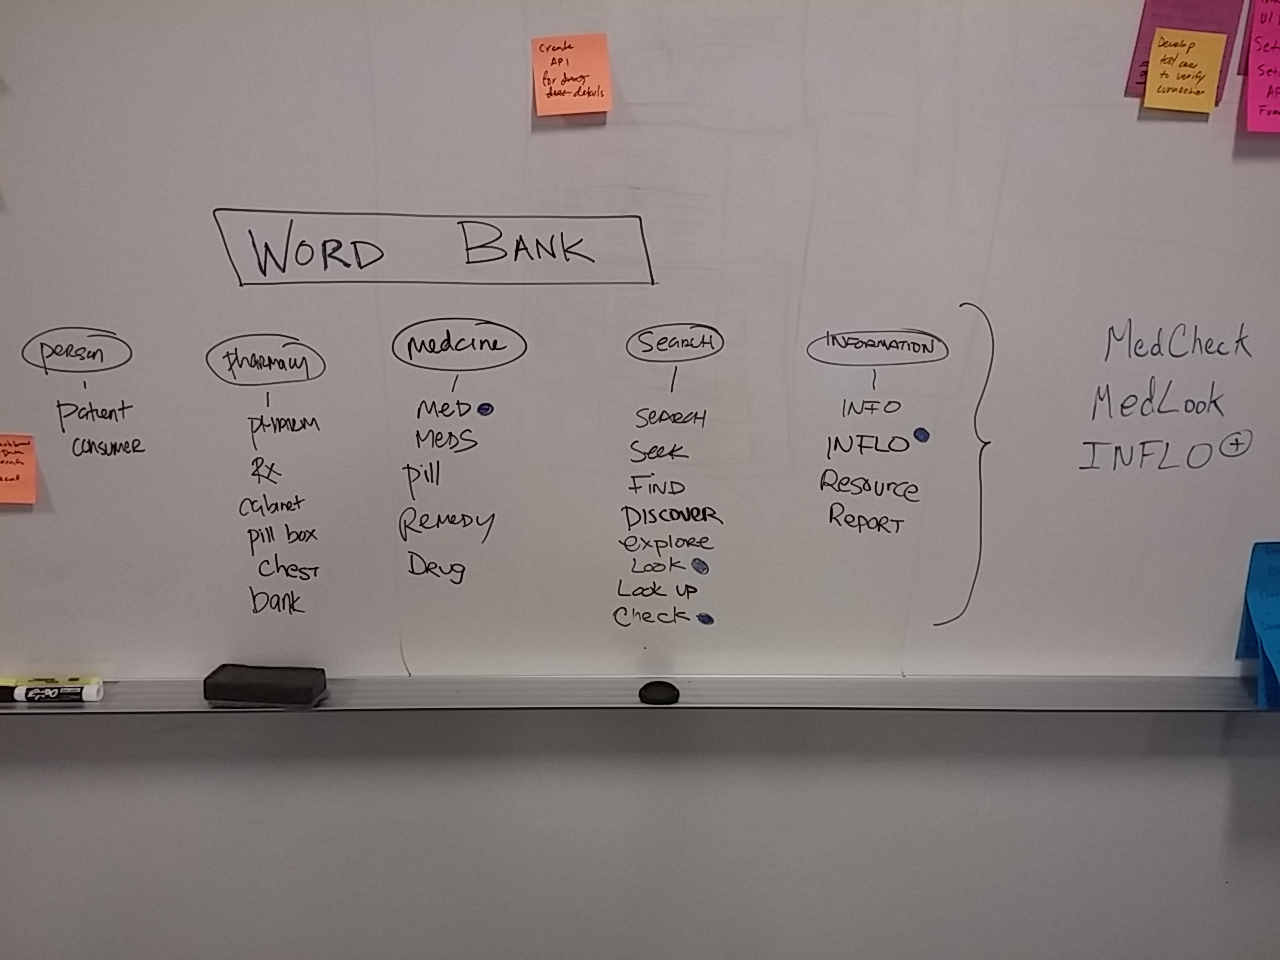 Create
API
for drug
details
Develop
test case
to verify
connection
UI
Set
Set
AP
WORD BANK
person
patient
consumer
pharmacy
PHARM
Rx
cabinet
pill box
chest
bank
medcine
MED
MEDS
pill
REMEDY
Drug
SEARCH
SEARCH
Seek
FIND
DISCOVER
explore
LOOK
LOOK UP
Check
INFORMATION
INFO
INFLO
Resource
REPORT
MedCheck
MedLook
INFLO +
EXPO